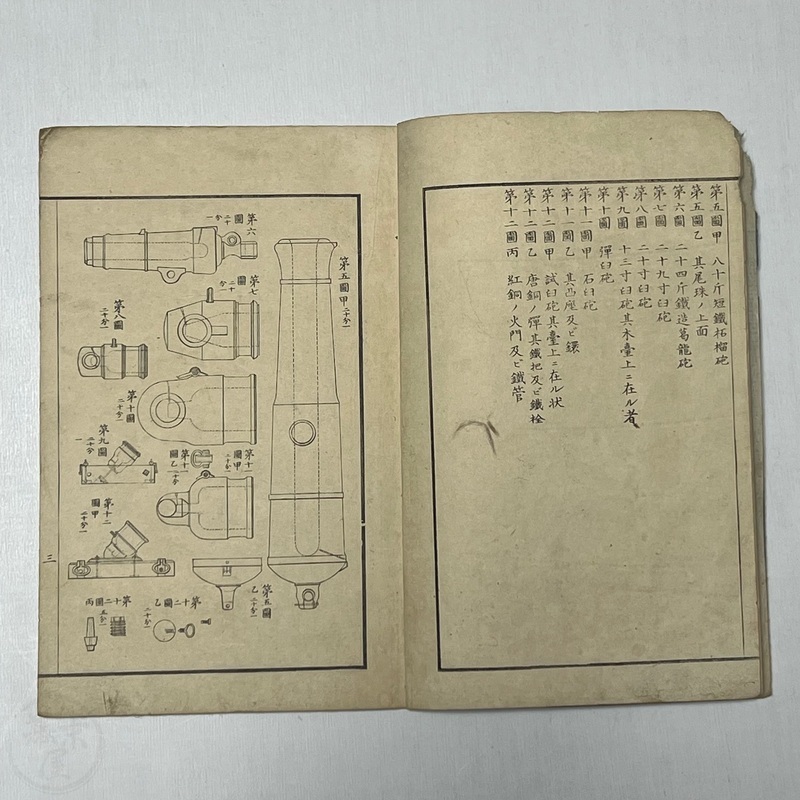 第五圖甲 八十斤短鐵柘榴砲
第五圖乙 其尾珠ノ上面
第六圖 二十四斤鐵造葛龍砲
第七圖 二十九寸臼砲
第八圖 二十寸臼砲
第九圖 十三寸臼砲其木臺上ニ在ル者
第十圖 彈臼砲
第十一圖甲 石臼砲
第十一圖乙 其凸座及ヒ鐶
第十二圖甲 試臼砲其臺上ニ在ル狀
第十二圖乙 唐銅ノ彈其鐵把及ヒ鐵栓
第十二圖丙 紅銅ノ火門及ヒ鐵管
第五圖甲 二十分一
第六圖 二十分一
第七圖 二十分
第八圖 二十分一
第十圖 二十分一
第九圖 二十分一
第十一圖甲 二十分一
第十一圖乙 十分一
第十二圖甲 二十分一
第五圖乙 二十分一
第十二圖乙 二十分一
第十二圖丙 五分一
三